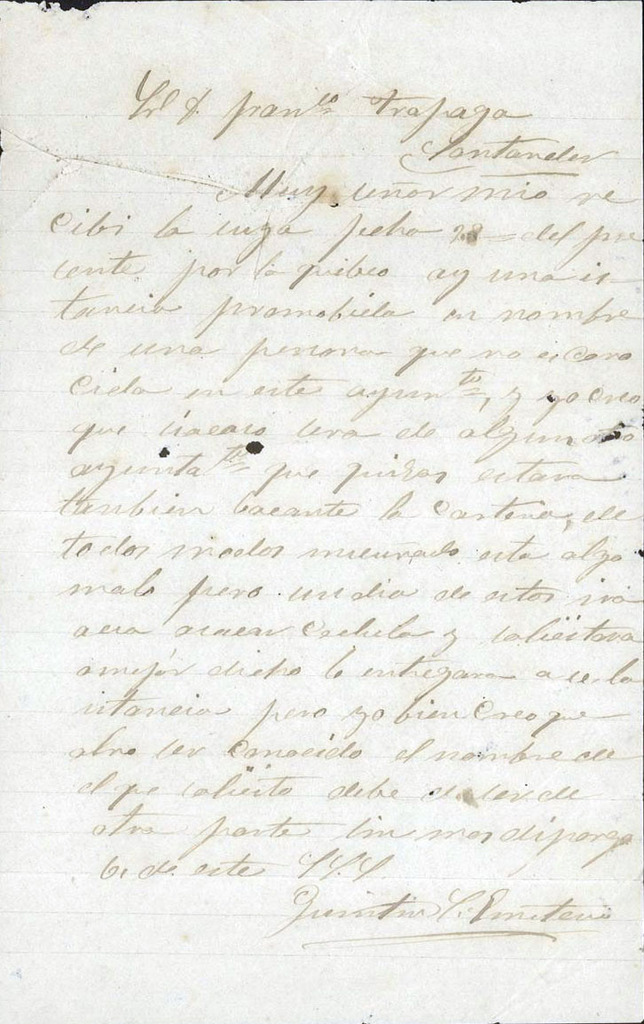 Sr D. franco trapaga
Santander
Muy señor mio re
cibi la suya fecha 28 del pre
cente por la que beo ay una is
tancia promobida en nombre
de una persona que no es cono
cida en este ayunto, y yo creo
que sera de algun otro
ayuntato que quizas estara
tanbien bacante la cartera, de
todos modos mi cuñado esta algo
malo pero un dia de estos ira
acia asacar Cedula y
amejor dicho le entregara a la
istancia pero yo bien creo que
ser conocido el nombre de
el que debe de ser de
otra parte sin mas disponga
de este S.S.S.
Quintin S. Emeterio